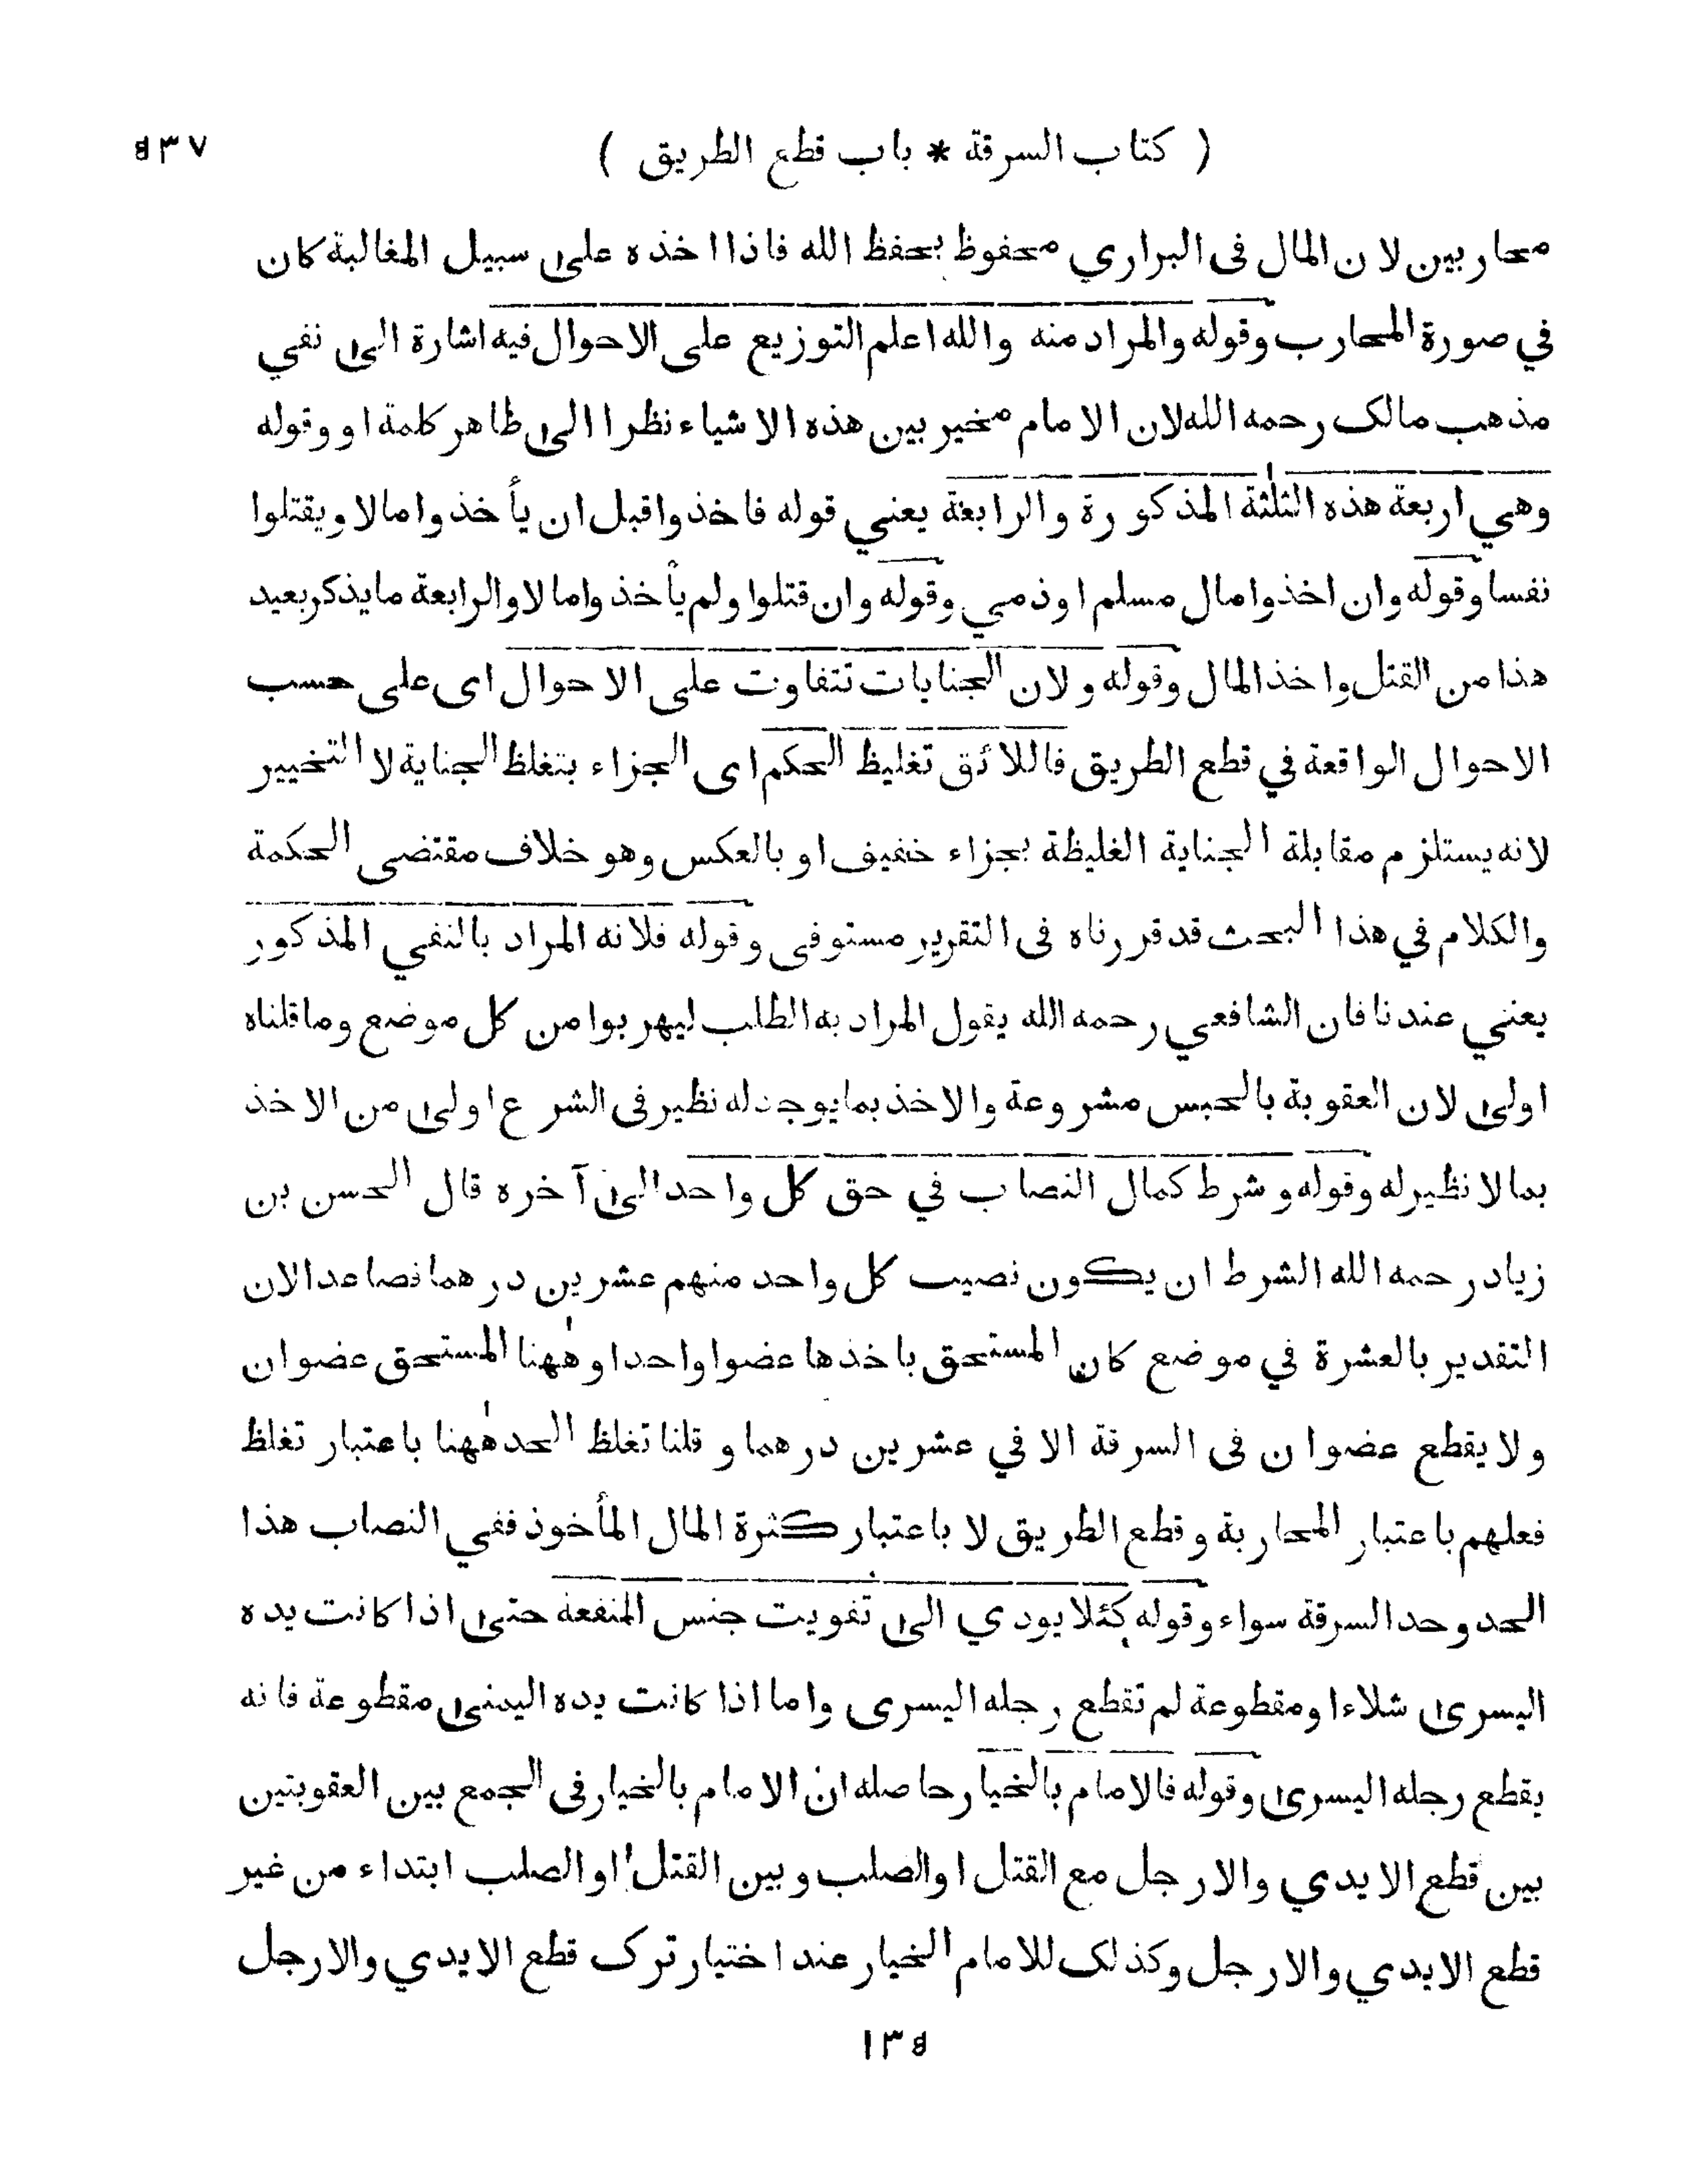 ( كتاب السرقة * باب قطع الطريق ) ٥٣٧
محاربين لان المال فى البراري محفوظ بحفظ الله فاذا اخذه على سبيل المغالبة كان
في صورة المحارب وقوله والمراد منه والله اعلم التوزيع على الاحوال فيه اشارة الى نفي
مذهب مالك رحمه الله لان الامام مخير بين هذه الاشياء نظرا الى ظاهر كلمة او وقوله
وهي اربعة هذه الثلثة المذكورة والرابعة يعني قوله فاخذوا قبل ان يأخذوا مالا ويقتلوا
نفسا وقوله وان اخذوا مال مسلم او ذمي وقوله وان قتلوا ولم يأخذوا مالا والرابعة مايذكر بعيد
هذا من القتل واخذ المال وقوله ولان الجنايات تتفاوت على الاحوال اى على حسب
الاحوال الواقعة في قطع الطريق فاللائق تغليظ الحكم اى الجزاء بتغلظ الجناية لا التخيير
لانه يستلزم مقابلة الجناية الغليظة بجزاء خفيف او بالعكس وهو خلاف مقتضى الحكمة
والكلام في هذا البحث قد قررناه فى التقرير مستوفى وقوله فلانه المراد بالنفي المذكور
يعني عندنا فان الشافعي رحمه الله يقول المراد به الطلب ليهربوا من كل موضع وماقلناه
اولى لان العقوبة بالحبس مشروعة والاخذ بمايوجد له نظير فى الشرع اولى من الاخذ
بما لا نظير له وقوله وشرط كمال النصاب في حق كل واحد الى آخره قال الحسن بن
زياد رحمه الله الشرط ان يكون نصيب كل واحد منهم عشرين درهما فصاعدا لان
التقدير بالعشرة في موضع كان المستحق باخذها عضوا واحدا وههنا المستحق عضوان
ولا يقطع عضوان فى السرقة الا في عشرين درهما وقلنا تغلظ الحد ههنا باعتبار تغلظ
فعلهم باعتبار المحاربة وقطع الطريق لا باعتبار كثرة المال المأخوذ ففي النصاب هذا
الحد وحد السرقة سواء وقوله كئلا يودي الى تفويت جنس المنفعة حتى اذا كانت يده
اليسرى شلاء او مقطوعة لم تقطع رجله اليسرى واما اذا كانت يده اليمنى مقطوعة فانه
يقطع رجله اليسرى وقوله فالامام بالخيار حاصله ان الامام بالخيار فى الجمع بين العقوبتين
بين قطع الايدي والارجل مع القتل او الصلب وبين القتل او الصلب ابتداء من غير
قطع الايدي والارجل وكذلك للامام الخيار عند اختيار ترك قطع الايدي والارجل
١٣٥